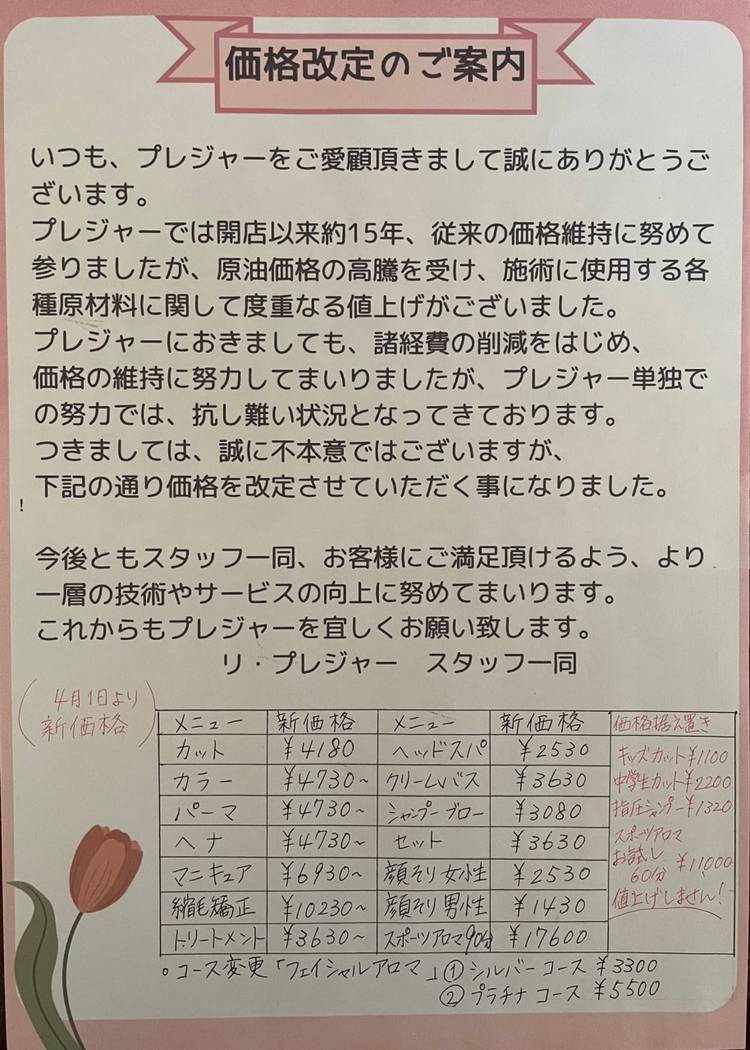 価格改定のご案内
いつも、プレジャーをご愛顧頂きまして誠にありがとうご
ざいます。
プレジャーでは開店以来約15年、従来の価格維持に努めて
参りましたが、原油価格の高騰を受け、施術に使用する各
種原材料に関して度重なる値上げがございました。
プレジャーにおきましても、諸経費の削減をはじめ、
価格の維持に努力してまいりましたが、プレジャー単独で
の努力では、抗し難い状況となってきております。
つきましては、誠に不本意ではございますが、
下記の通り価格を改定させていただく事になりました。
!
今後ともスタッフ一同、お客様にご満足頂けるよう、より
一層の技術やサービスの向上に努めてまいります。
これからもプレジャーを宜しくお願い致します。
リ・プレジャー スタッフ一同
(4月1日より
新価格)
メニュー 新価格 メニュー 新価格
カット ¥4180 ヘッドスパ ¥2530
カラー ¥4730~ クリームバス ¥3630
パーマ ¥4730~ シャンプーブロー ¥3080
ヘナ ¥4730~ セット ¥3630
マニキュア ¥6930~ 顔そり女性 ¥2530
縮毛矯正 ¥10230~ 顔そり男性 ¥1430
トリートメント ¥3630~ スポーツアロマ90分 ¥17600
価格据え置き
キッズカット¥1100
中学生カット¥2200
指圧シャンプー¥1320
スポーツアロマ
お試し
60分 ¥11000
値上げしません!
。コース変更「フェイシャルアロマ」①シルバーコース ¥3300
②プラチナコース ¥5500